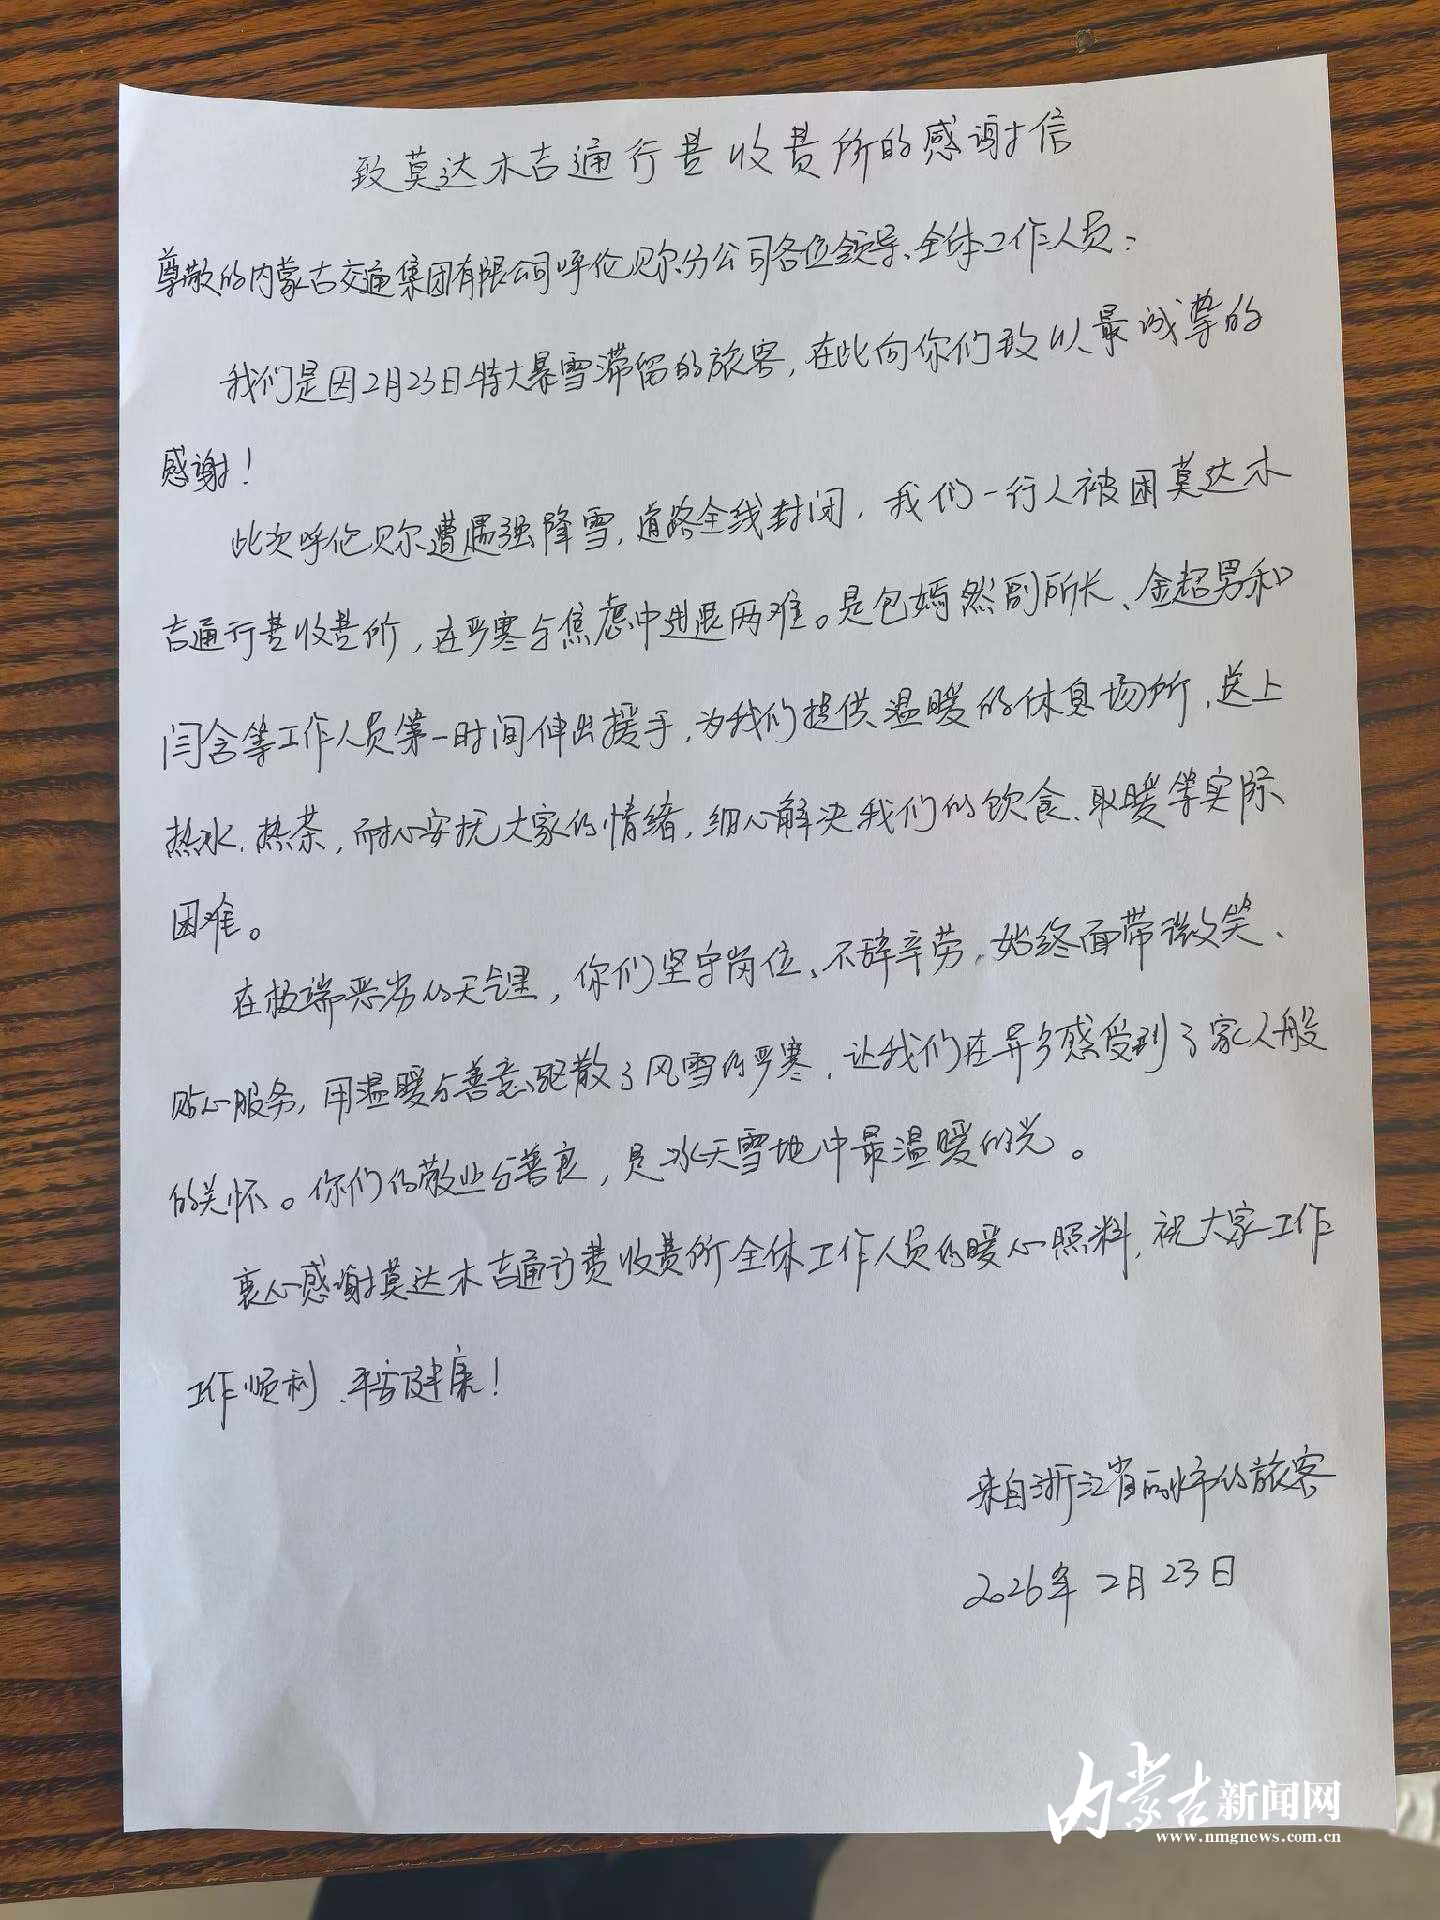 致莫达木吉通行费收费所的感谢信
尊敬的内蒙古交通集团有限公司呼伦贝尔分公司各位领导、全体工作人员：
我们是因2月23日特大暴雪滞留的旅客，在此向你们致以最诚挚的
感谢！
此次呼伦贝尔遭遇强降雪，道路全线封闭，我们一行人被困莫达木
吉通行费收费所，在严寒与焦虑中进退两难。是包嫣然副所长、金超男和
闫含等工作人员第一时间伸出援手，为我们提供温暖的休息场所，送上
热水、热茶，耐心安抚大家的情绪，细心解决我们的饮食、取暖等实际
困难。
在极端恶劣的天气里，你们坚守岗位、不辞辛劳，始终面带微笑、
贴心服务，用温暖与善意驱散了风雪的严寒，让我们在异乡感受到了家人般
的关怀。你们的敬业与善良，是冰天雪地中最温暖的光。
衷心感谢莫达木吉通行费收费所全体工作人员的暖心照料，祝大家工作
工作顺利、平安健康！
来自浙江省 市的旅客
2026年2月23日
内蒙古新闻网
www.nmgnews.com.cn